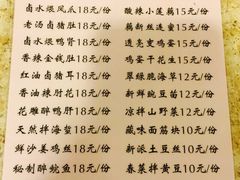 卤水煨凤爪18元/份
老汤卤猪肚18元/份
卤水煨鸭肾18元/份
香辣金钱肚18元/份
红油卤猪耳18元/份
香油辣肘花18元/份
花雕醉鸭肝18元/份
天然拌海蜇18元/份
鲜沙姜鸡丝18元/份
秘制醉鲩鱼18元/份
酸辣小莲藕15元/份
藕新丝连蜜15元/份
透亮叉鸡姜15元/份
鸡姜干花生15元/份
翠绿脆海草12元/份
新鲜豌豆苗12元/份
凉拌山野菜12元/份
藏味面筋块10元/份
新派土豆丝10元/份
春菜拌黄豆10元/份